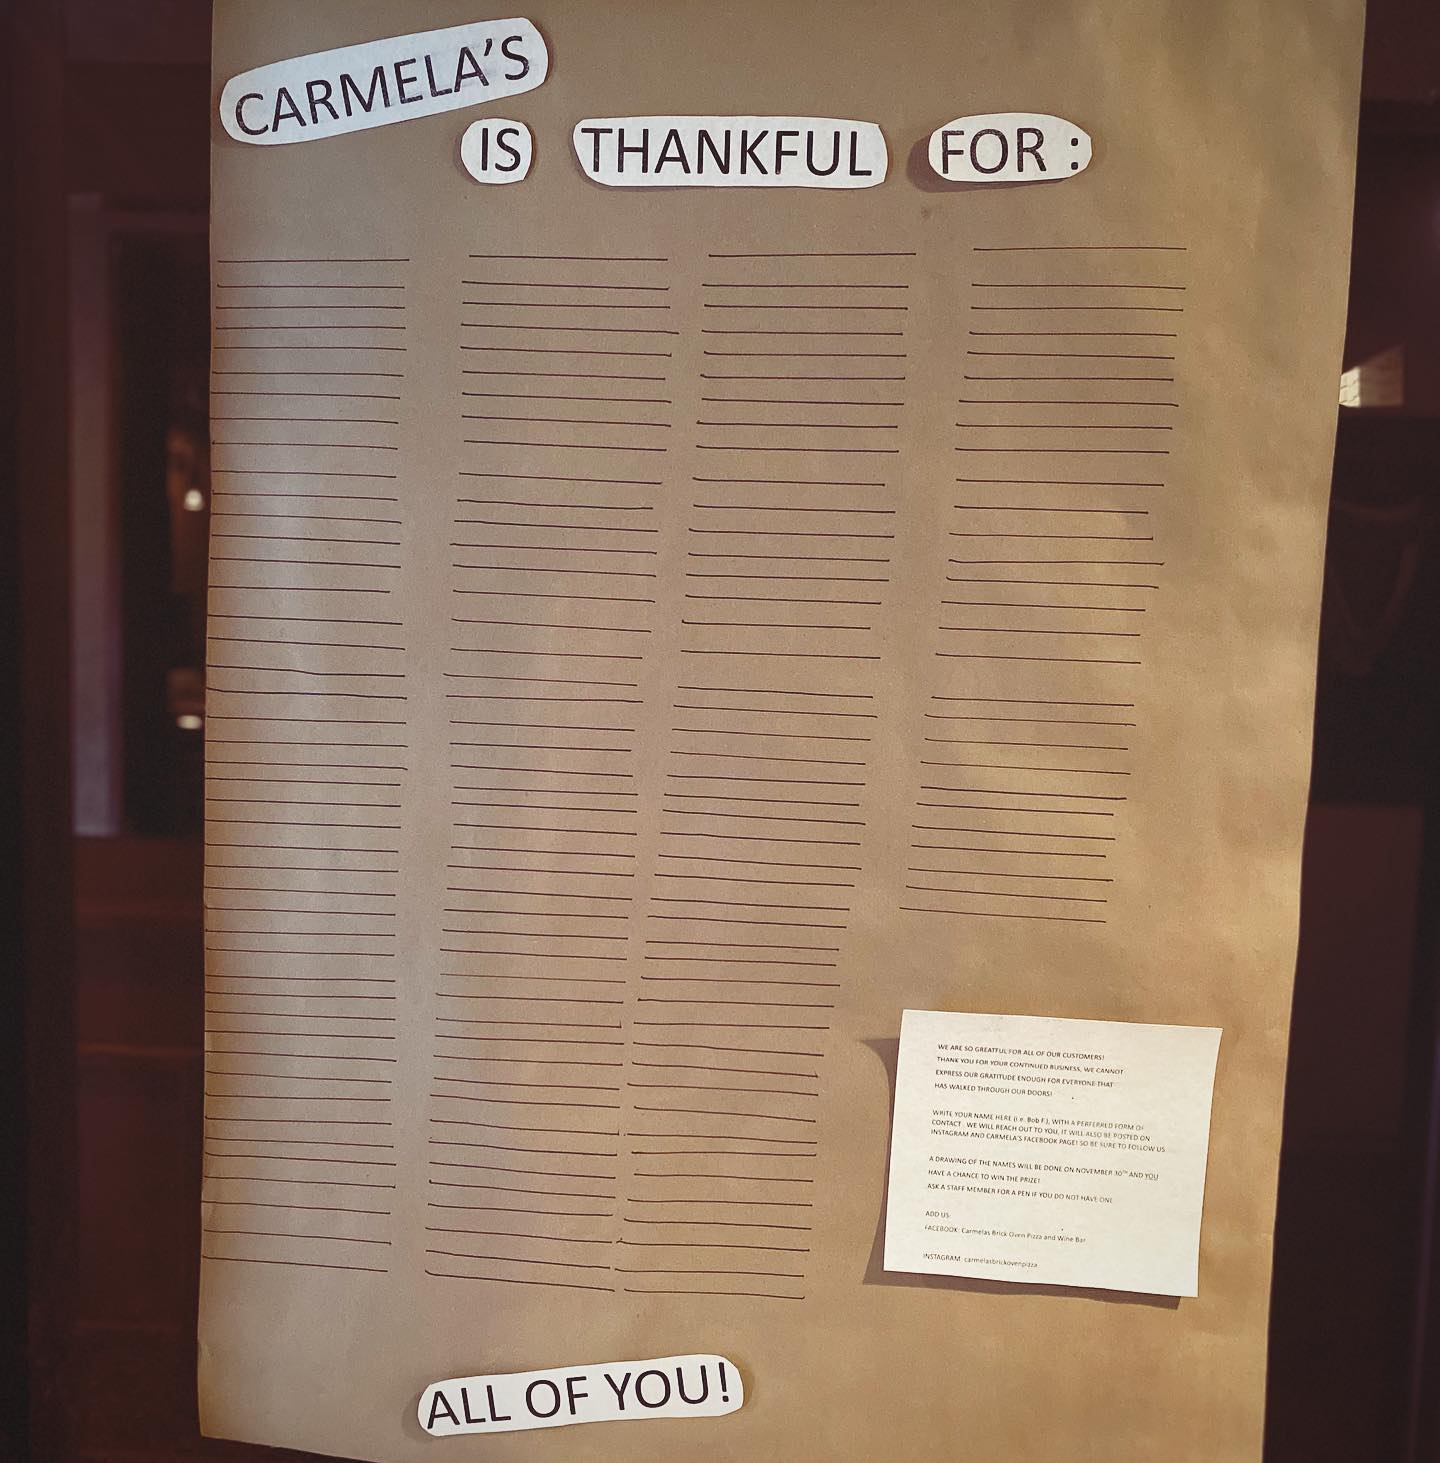 CARMELA'S
IS THANKFUL FOR :
WE ARE SO GREATFUL FOR ALL OF OUR CUSTOMERS!
THANK YOU FOR YOUR CONTINUED BUSINESS, WE CANNOT
EXPRESS OUR GRATITUDE ENOUGH FOR EVERYONE THAT
HAS WALKED THROUGH OUR DOORS!
WRITE YOUR NAME HERE (i.e. Bob F.), WITH A PERFERRED FORM OF
CONTACT. WE WILL REACH OUT TO YOU, IT WILL ALSO BE POSTED ON
INSTAGRAM AND CARMELA'S FACEBOOK PAGE! SO BE SURE TO FOLLOW US
A DRAWING OF THE NAMES WILL BE DONE ON NOVEMBER 30TH AND YOU
HAVE A CHANCE TO WIN THE PRIZE!
ASK A STAFF MEMBER FOR A PEN IF YOU DO NOT HAVE ONE
ADD US:
FACEBOOK: Carmelas Brick Oven Pizza and Wine Bar
INSTAGRAM: carmelasbrickovenpizza
ALL OF YOU!